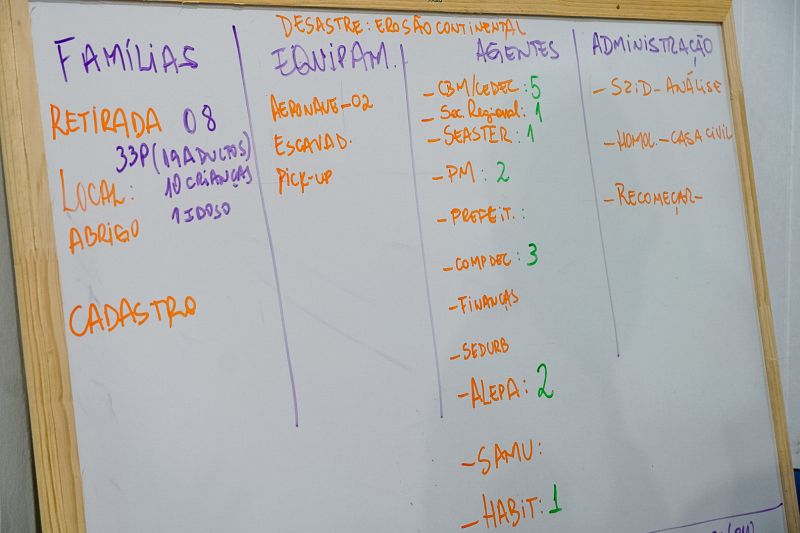 DESASTRE: EROSÃO CONTINENTAL
FAMÍLIAS
RETIRADA 08
33P (19 ADULTOS)
10 CRIANÇAS
1 IDOSO
LOCAL:
ABRIGO
CADASTRO
EQUIPAM.
AERONAVE-02
ESCAVAD.
PICK-UP
AGENTES
- CBM/CEDEC: 5
- Sec. Regional: 1
- SEASTER: 1
- PM: 2
- PREFEIT.:
- COMPDEC: 3
- FINANÇAS
- SEDURB
- ALEPA: 2
- SAMU:
- HABIT: 1
ADMINISTRAÇÃO
- S2ID - ANÁLISE
- HOMOL. - CASA CIVIL
- RECOMEÇAR -